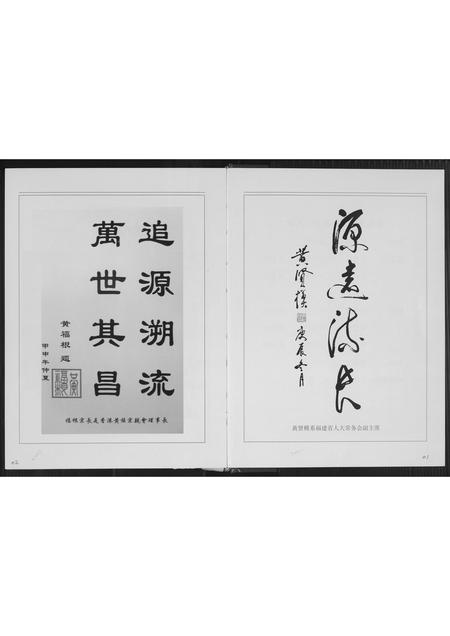 源遠流長
黄賢模
庚辰冬月
黃賢模系福建省人大常务会副主席
01
追源溯流
萬世其昌
黄福根題
甲申年仲夏
福根宗長是香港黄族宗親會理事長
02